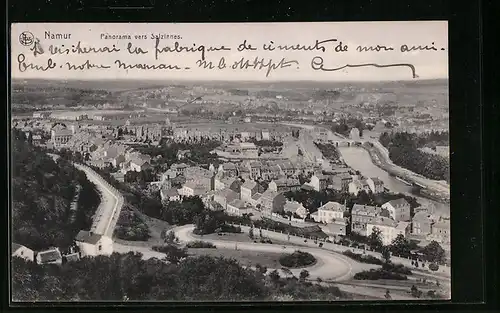 Namur
Panorama vers Salzinnes.
visiterai la fabrique de ciments de mon ami.
notre maman.